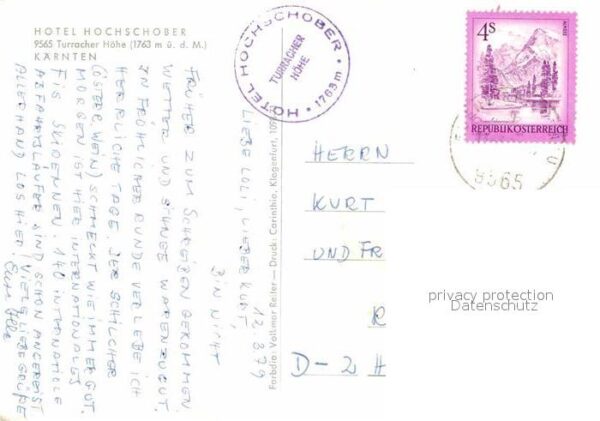 HOTEL HOCHSCHOBER
9565 Turracher Höhe (1763 m ü. d. M.)
KÄRNTEN
HOTEL HOCHSCHOBER
TURRACHER
HÖHE
· 1763m ·
4S
REPUBLIK ÖSTERREICH
9565
12.3.79
LIEBE LOLI, LIEBER KURT,
BIN NICHT
FRÜHER ZUM SCHREIBEN GEKOMMEN
WETTER UND SCHNEE WAREN ZU GUT.
IN FRÖHLICHER RUNDE VERLEBE ICH
HERRLICHE TAGE. DER SCHILCHER
(ÖSTERR. WEIN) SCHMECKT WIE IMMER GUT.
MORGEN IST HIER INTERNATIONALES
FIS SKIRENNEN. 140 INTERNATIONALE
ABFAHRTSLÄUFER SIND SCHON ANGEREIST
ALLERHAND LOS HIER! VIELE LIEBE GRÜSSE
Farbdia: Volkmar Reiter — Druck: Carinthia, Klagenfurt,
HERRN
KURT
UND FR
R
D-2 H
privacy protection
Datenschutz